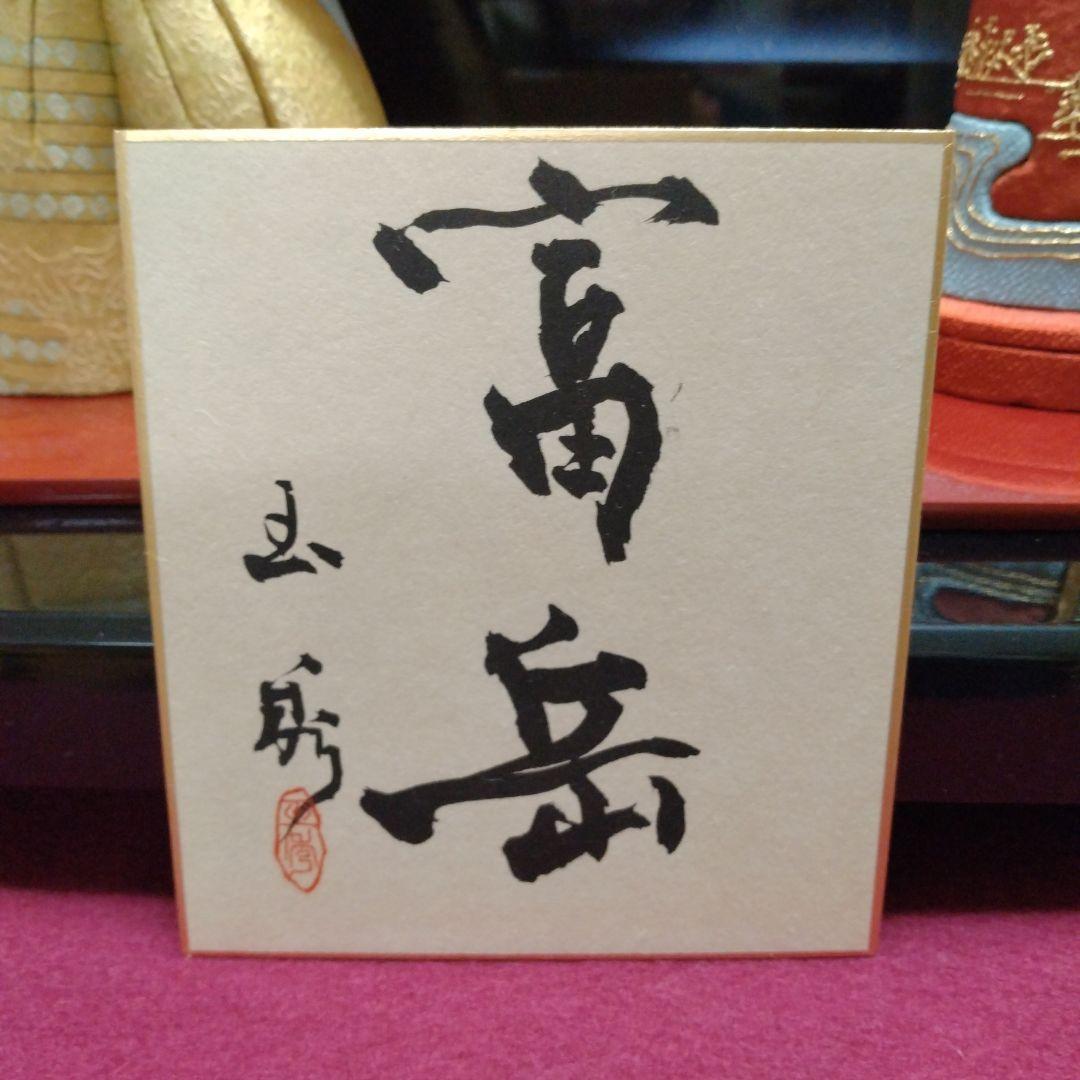 富岳
玉秀